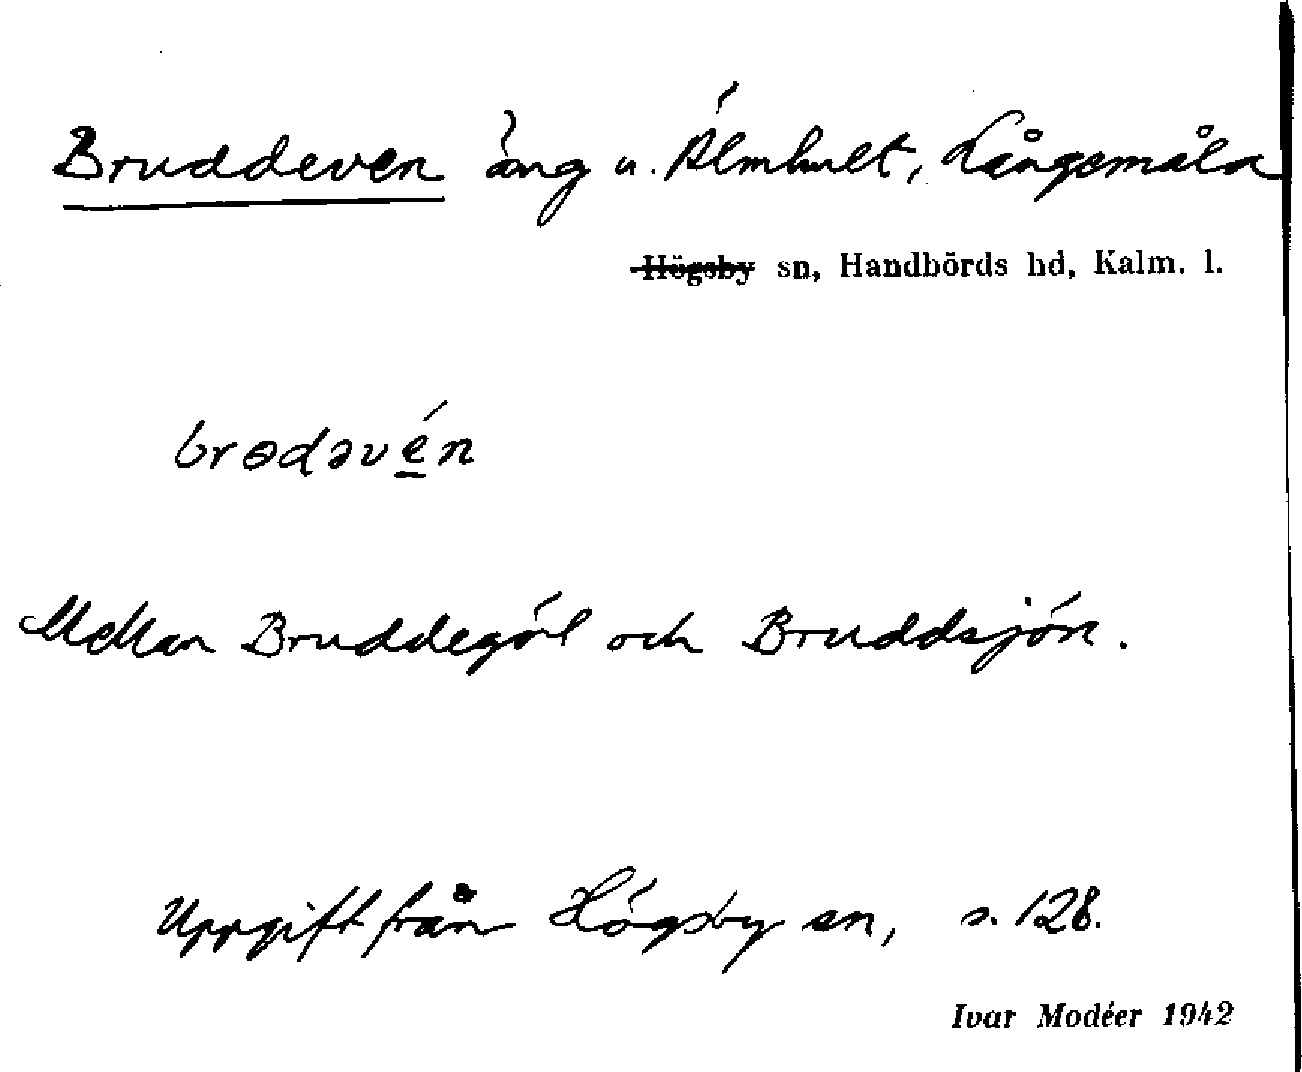 Bruddeven äng u. Älmhult, Långemåla
Högsby sn, Handbörds hd, Kalm. l.
brɵdəvén
Mellan Bruddegöl och Bruddsjön.
Uppgift från Högsby sn, s. 128.
Ivar Modéer 1942